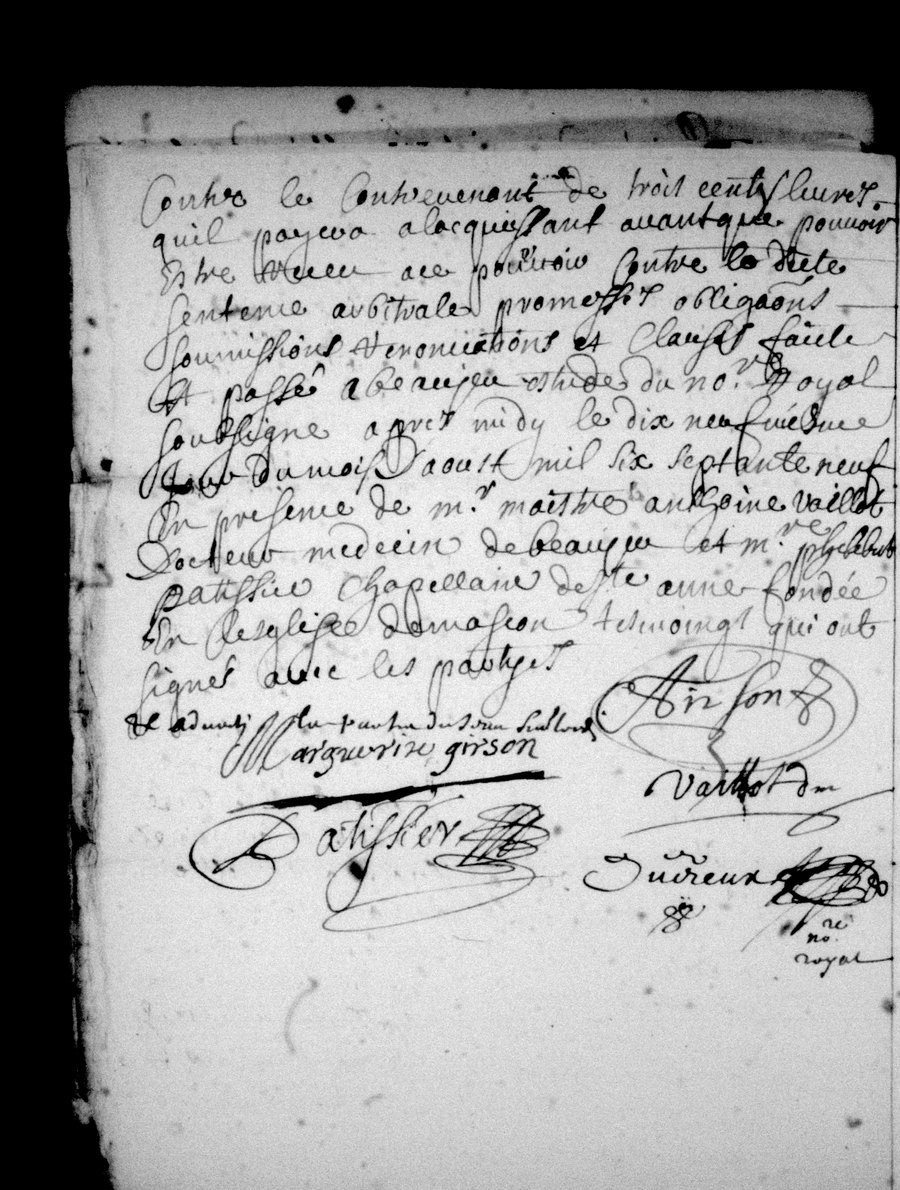 Contre le Contrevenant de trois cents livres
quil payera a lacquiessant avant que pouvoir
Estre receu a ce pourvoir Contre la dicte
sentence arbitrale promesses obligaōns
soumissions renonciations et Clauses faicte
Et passé a beaujeu estude du no.re Royal
soubsigne apres midy le dix neufviesme
Jour du mois D'aoust mil six septante neuf
En presence de m.r maistre anthoine Vaillot
Docteur medecin de beaujeu et m.re philibert
Patissier Chapellain de s.te anne fondée
En Lesglise de mascon tesmoings qui ont
signés avec les partyes
Girson
Marguerite girson
Vaillot dm
Patissier
no.re
royal